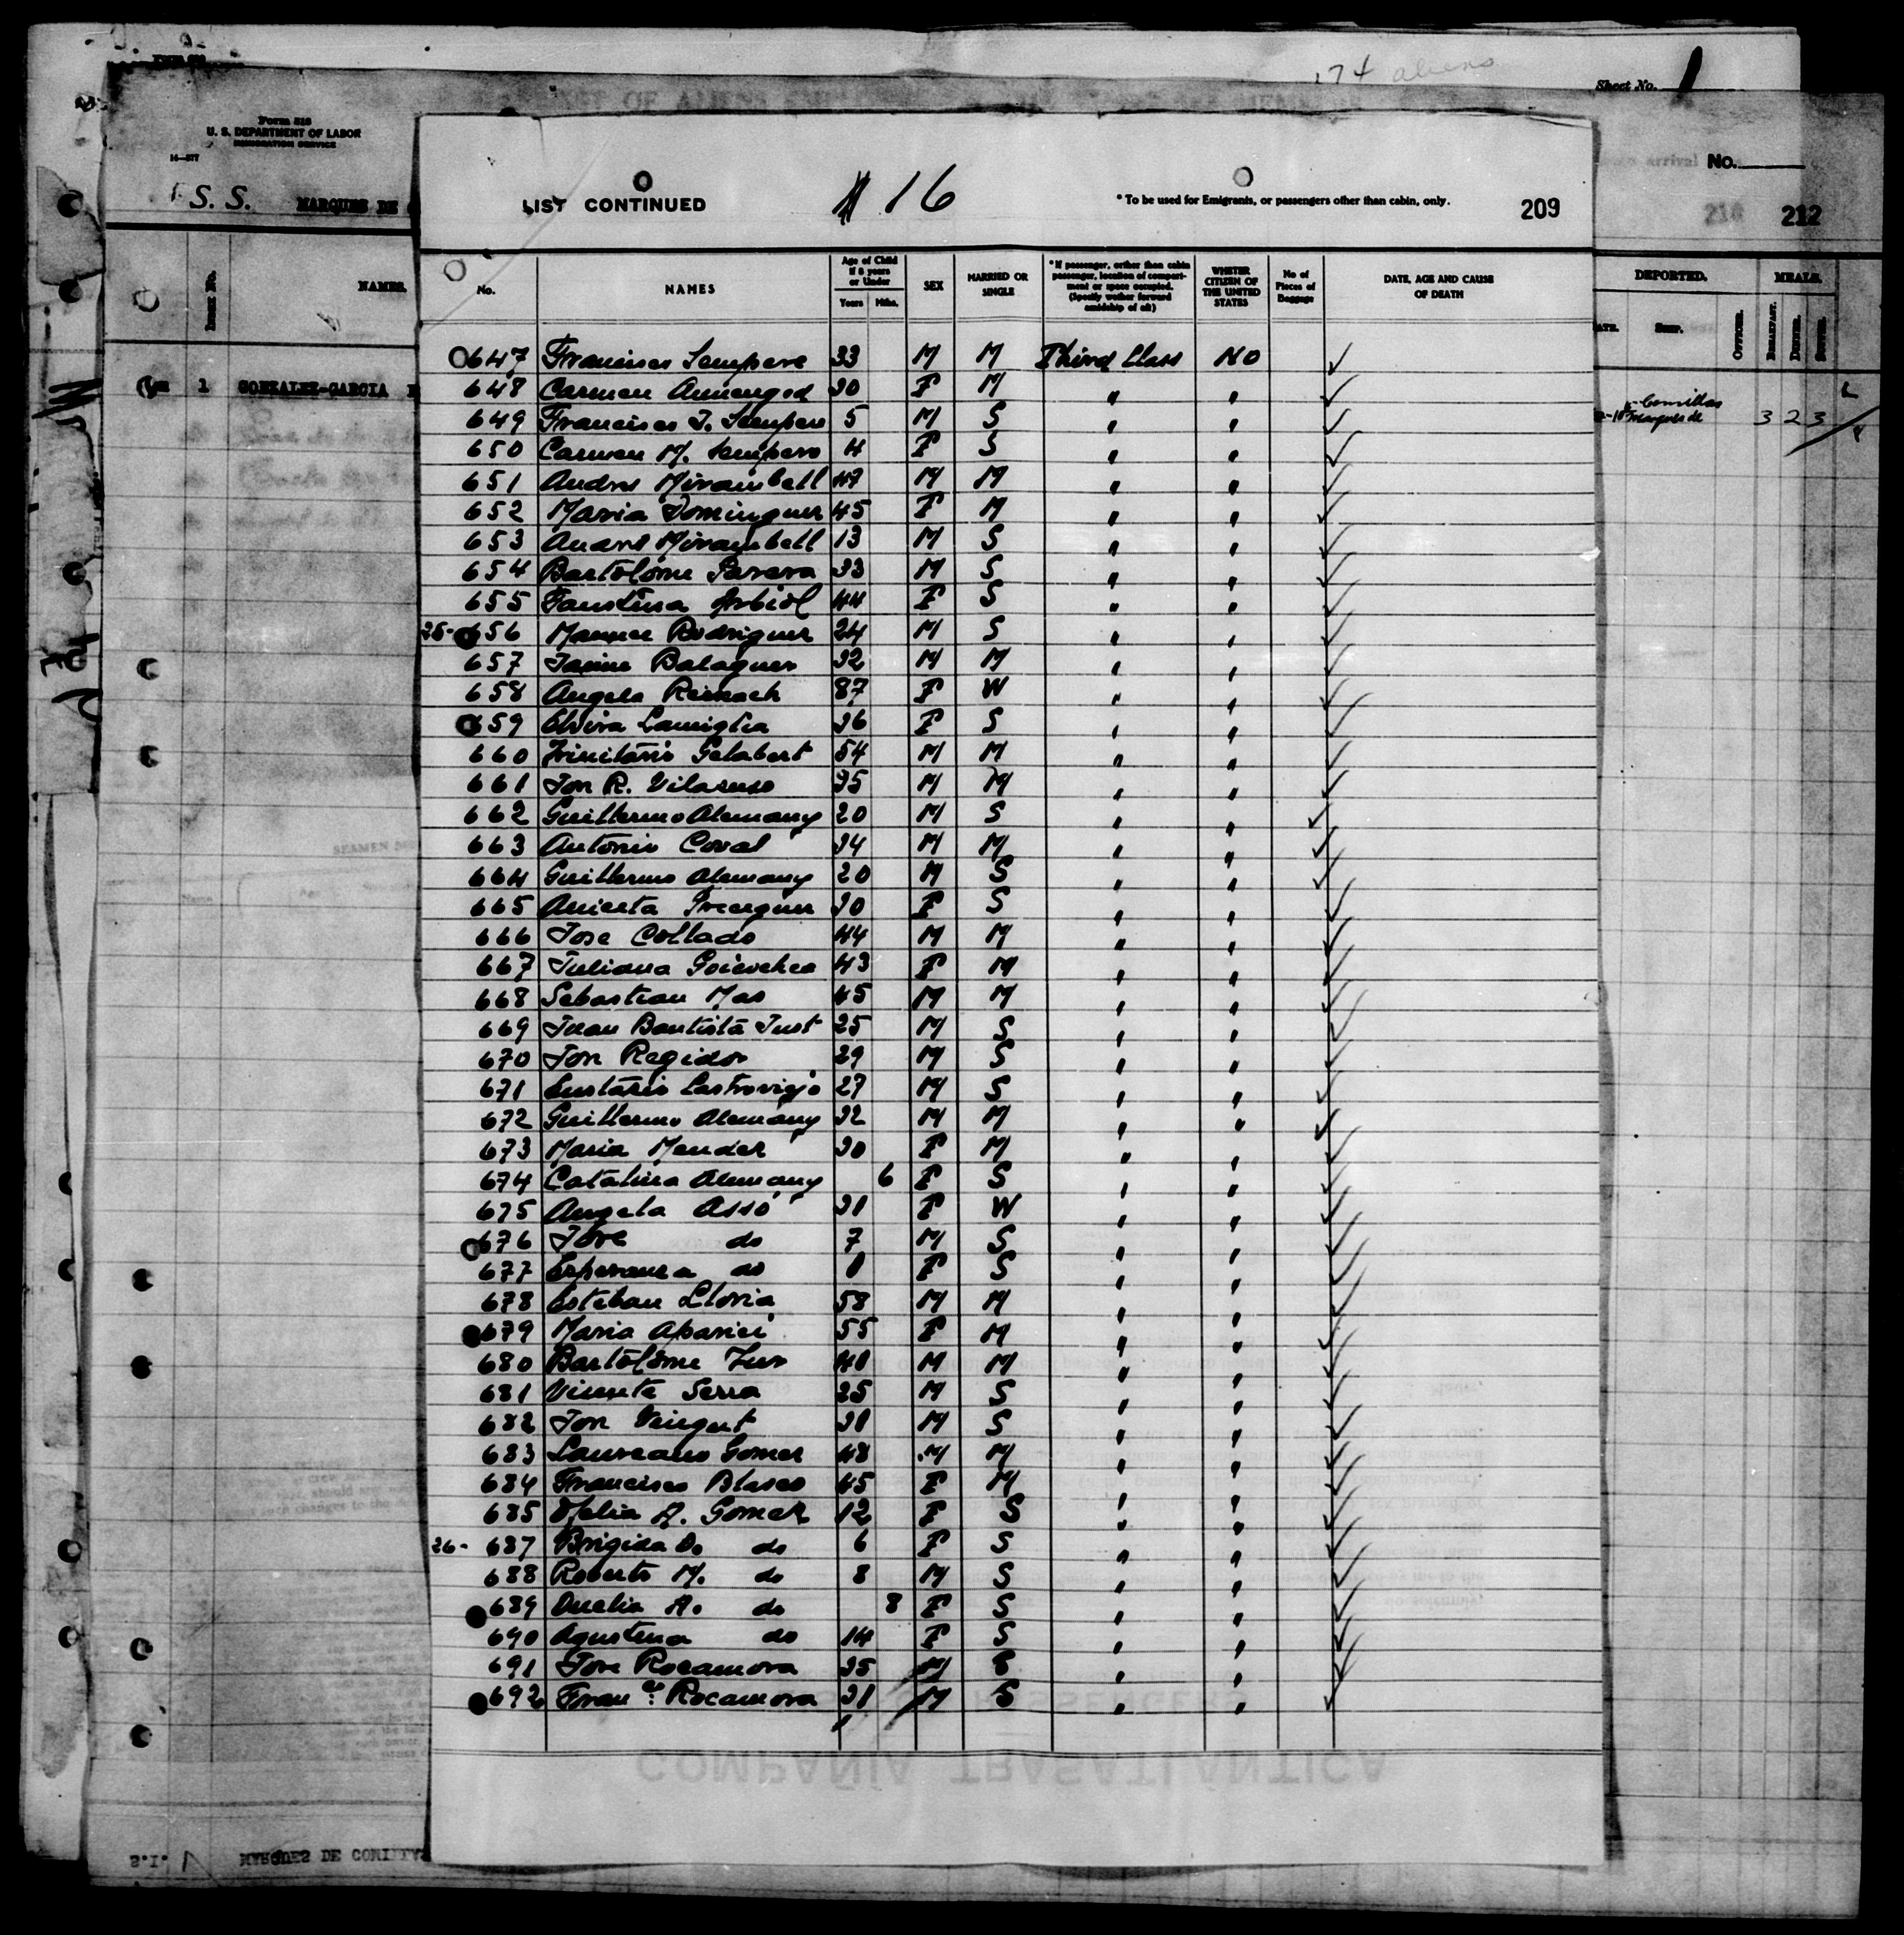 174 aliens
Sheet No. 1
Form 518
U. S. DEPARTMENT OF LABOR
IMMIGRATION SERVICE
16—577
S. S. MARQUES DE
arrival No.
LIST CONTINUED
# 16
* To be used for Emigrants, or passengers other than cabin, only.
209
210 212
NAMES.
DEPORTED.
MEALS.
OFFICER.
BREAKFAST.
DINNER.
SUPPER.
1 GONZALEZ-GARCIA
Comillas
Marques de
3 2 3
No. NAMES Age of Child if 8 years or Under Years Mths. SEX MARRIED OR SINGLE * If passenger, orther than cabin passenger, location of compartment or space occupied. (Specify wether forward amidship of aft) WHETER CITIZEN OF THE UNITED STATES No of Pieces of Baggage DATE, AGE AND CAUSE OF DEATH
647 Francisco Sempere 33 M M Third Class NO
648 Carmen Armengod 30 F M " "
649 Francisco J. Sempere 5 M S " "
650 Carmen M. Sempere 4 F S " "
651 Andres Mirambell 47 M M " "
652 Maria Dominguez 45 F M " "
653 Andres Mirambell 13 M S " "
654 Bartolome Parera 33 M S " "
655 Faustina Arbiol 44 F S " "
25- 656 Manuel Rodriguez 24 M S " "
657 Jaime Balaguer 32 M M " "
658 Angela Reinach 87 F W " "
659 Elvira Lamiglia 36 F S " "
660 Trinitario Gelabert 54 M M " "
661 Jose R. Vilaruso 35 M M " "
662 Guillermo Alemany 20 M S " "
663 Antonio Coval 34 M M " "
664 Guillermo Alemany 20 M S " "
665 Aniceta 30 F S " "
666 Jose Collado 44 M M " "
667 Juliana Goicochea 43 F M " "
668 Sebastian Mas 45 M M " "
669 Juan Bautista Just 25 M S " "
670 Jose Regidor 29 M S " "
671 Eustasio Castroviejo 27 M S " "
672 Guillermo Alemany 32 M M " "
673 Maria Mendez 30 F M " "
674 Catalina Alemany 6 F S " "
675 Angela Asso 31 F W " "
676 Jose do 7 M S " "
677 Esperanza do 1 F S " "
678 Esteban Lloria 58 M M " "
679 Maria Aparici 55 F M " "
680 Bartolome 41 M M " "
681 Vicente Serra 25 M S " "
682 Jose Vingut 31 M S " "
683 Laureano Gomez 48 M M " "
684 Francisca Blasco 45 F M " "
685 Ofelia A. Gomez 12 F S " "
26- 687 Brigida D. do 6 F S " "
688 Roberto M. do 8 M S " "
689 Onelia A. do 8 F S " "
690 Agustina do 14 F S " "
691 Jose Rocamora 35 M S " "
692 Franco. Rocamora 31 M S " "
COMPAÑIA TRASATLANTICA
S.I. MARQUES DE COMILLAS